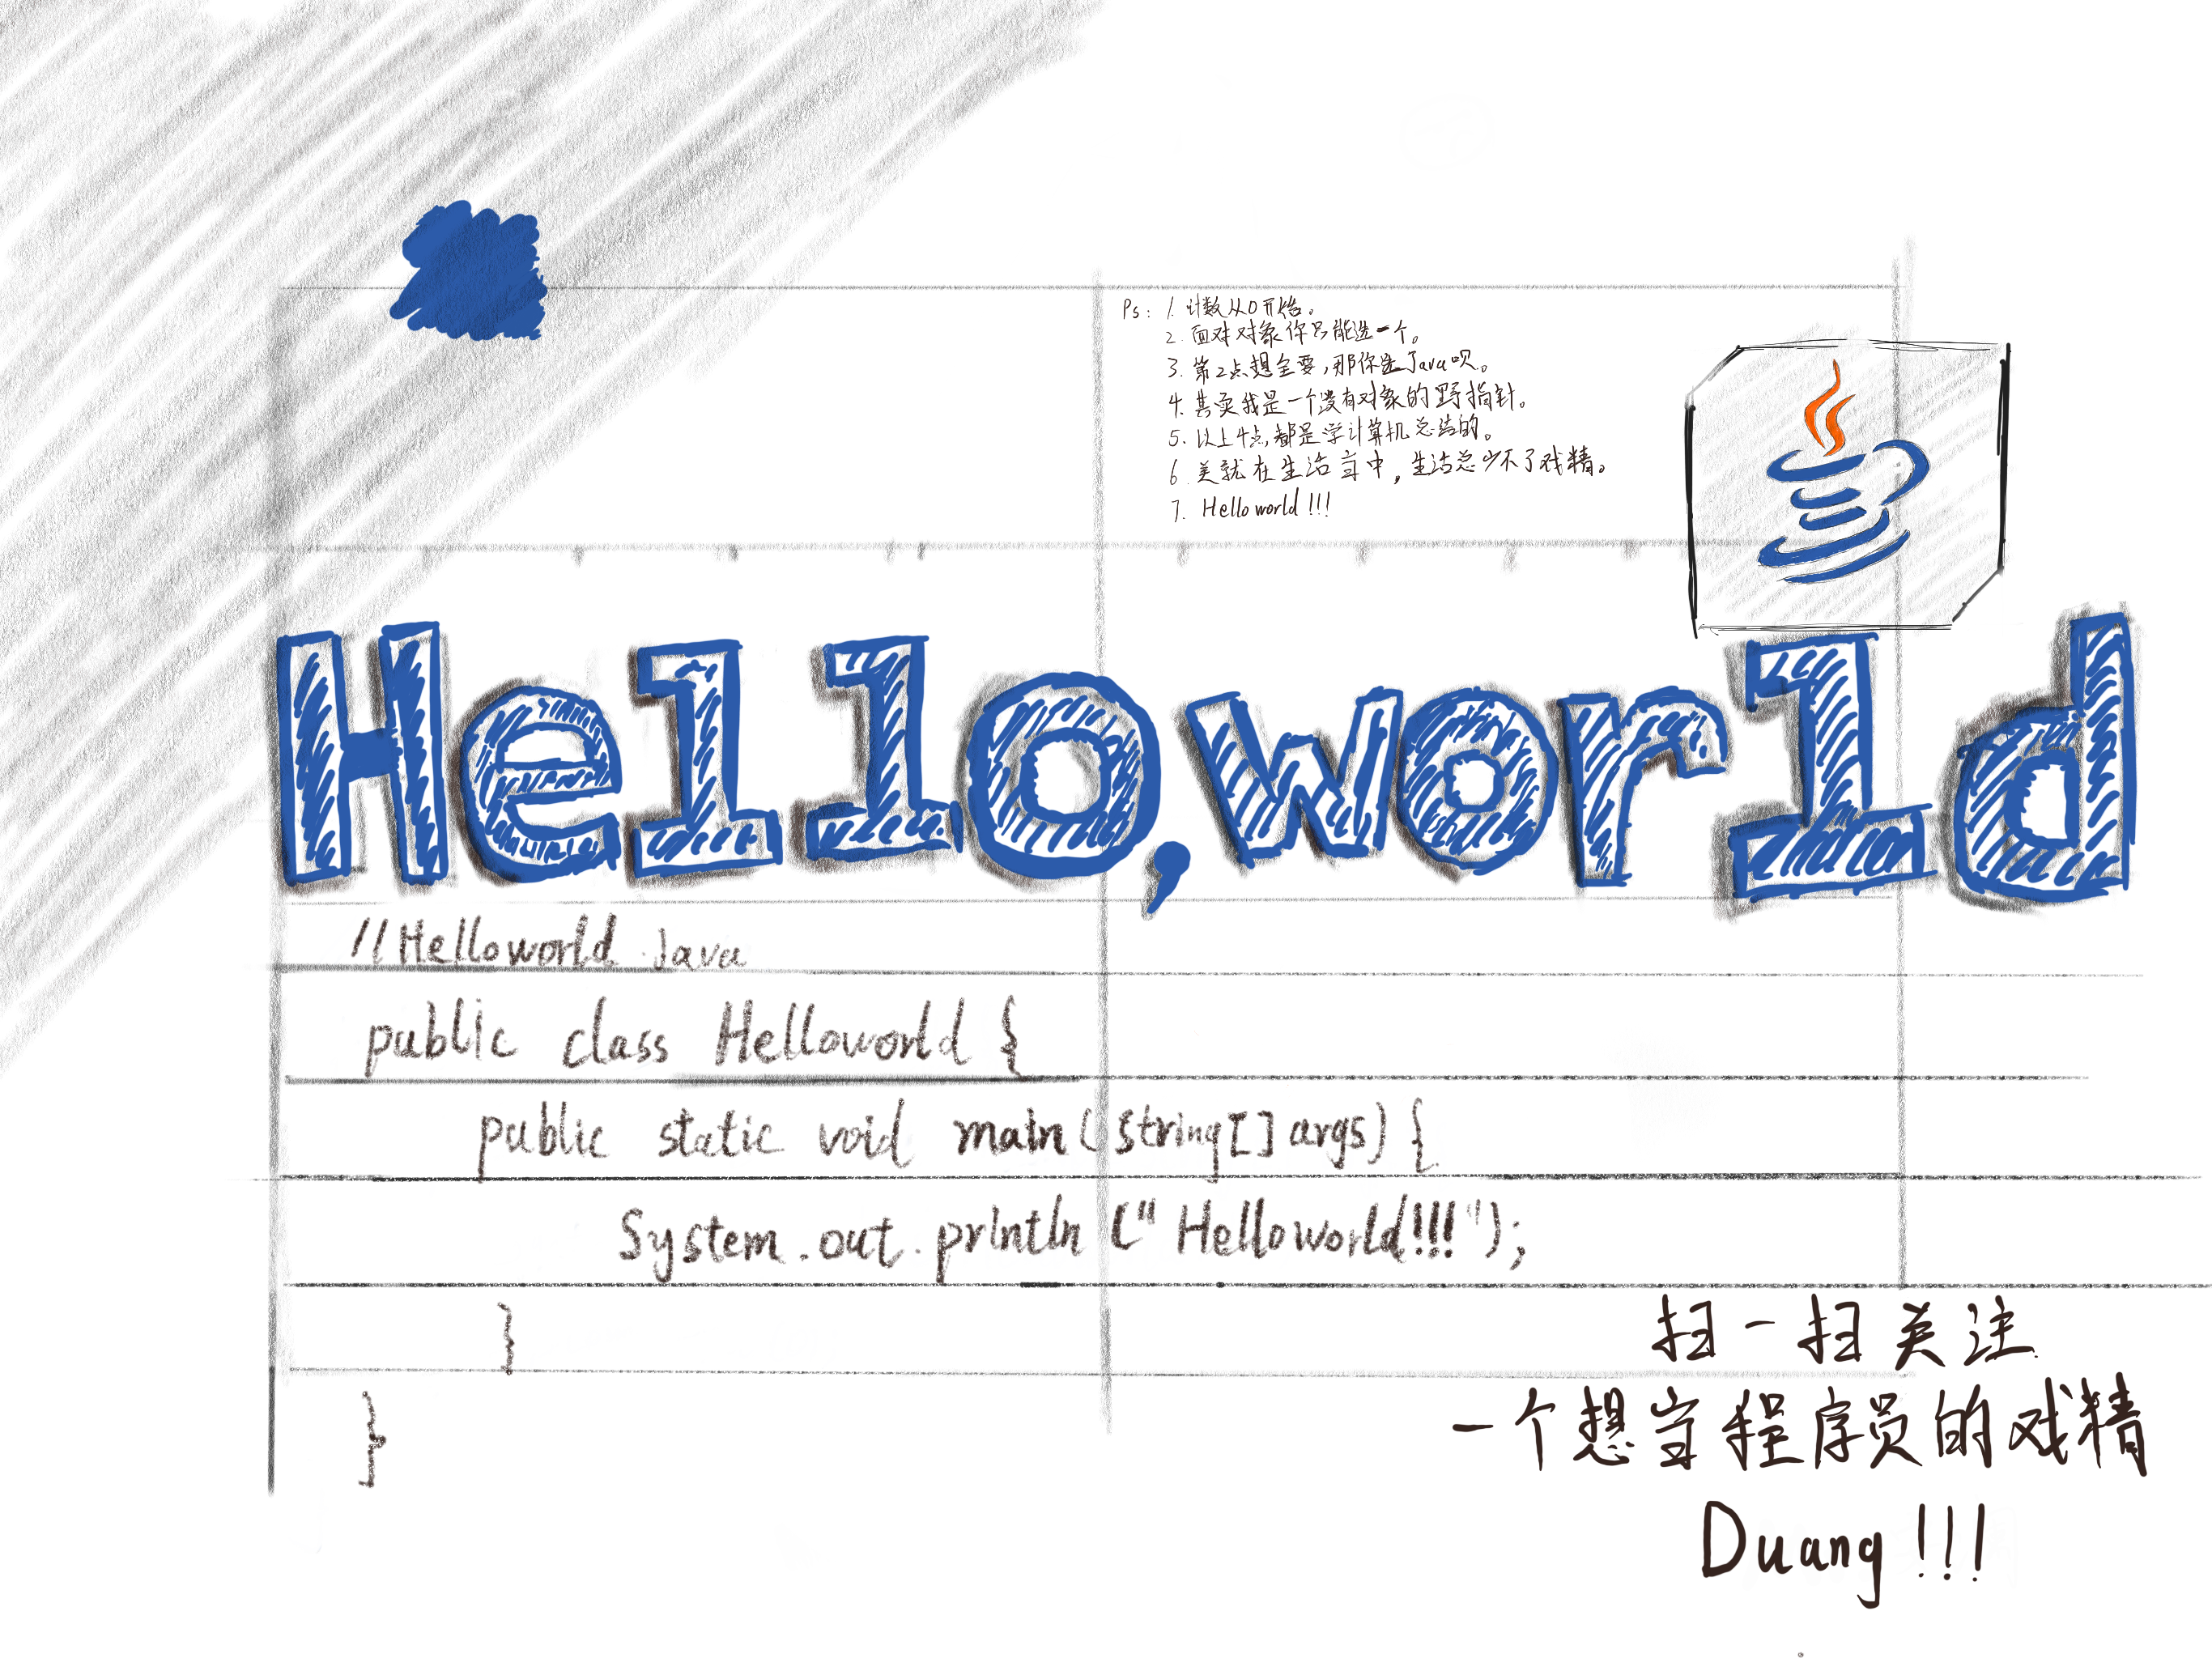 Ps: 1. 计数从0开始。
2. 面对对象你只能选一个。
3. 第2点想全要,那你选Java呗。
4. 其实我是一个没有对象的野指针。
5. 以上4点,都是学计算机总结的。
6. 美就在生活当中,生活总少不了戏精。
7. Hello world!!!
Hello,world
//Helloworld.java
public class Helloworld {
public static void main(String[] args) {
System.out.println("Helloworld!!!");
}
}
扫一扫关注
一个想当程序员的戏精
Duang!!!